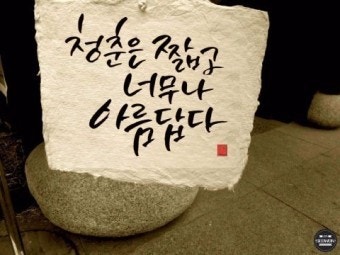 청춘은 짧고
너무나
아름답다